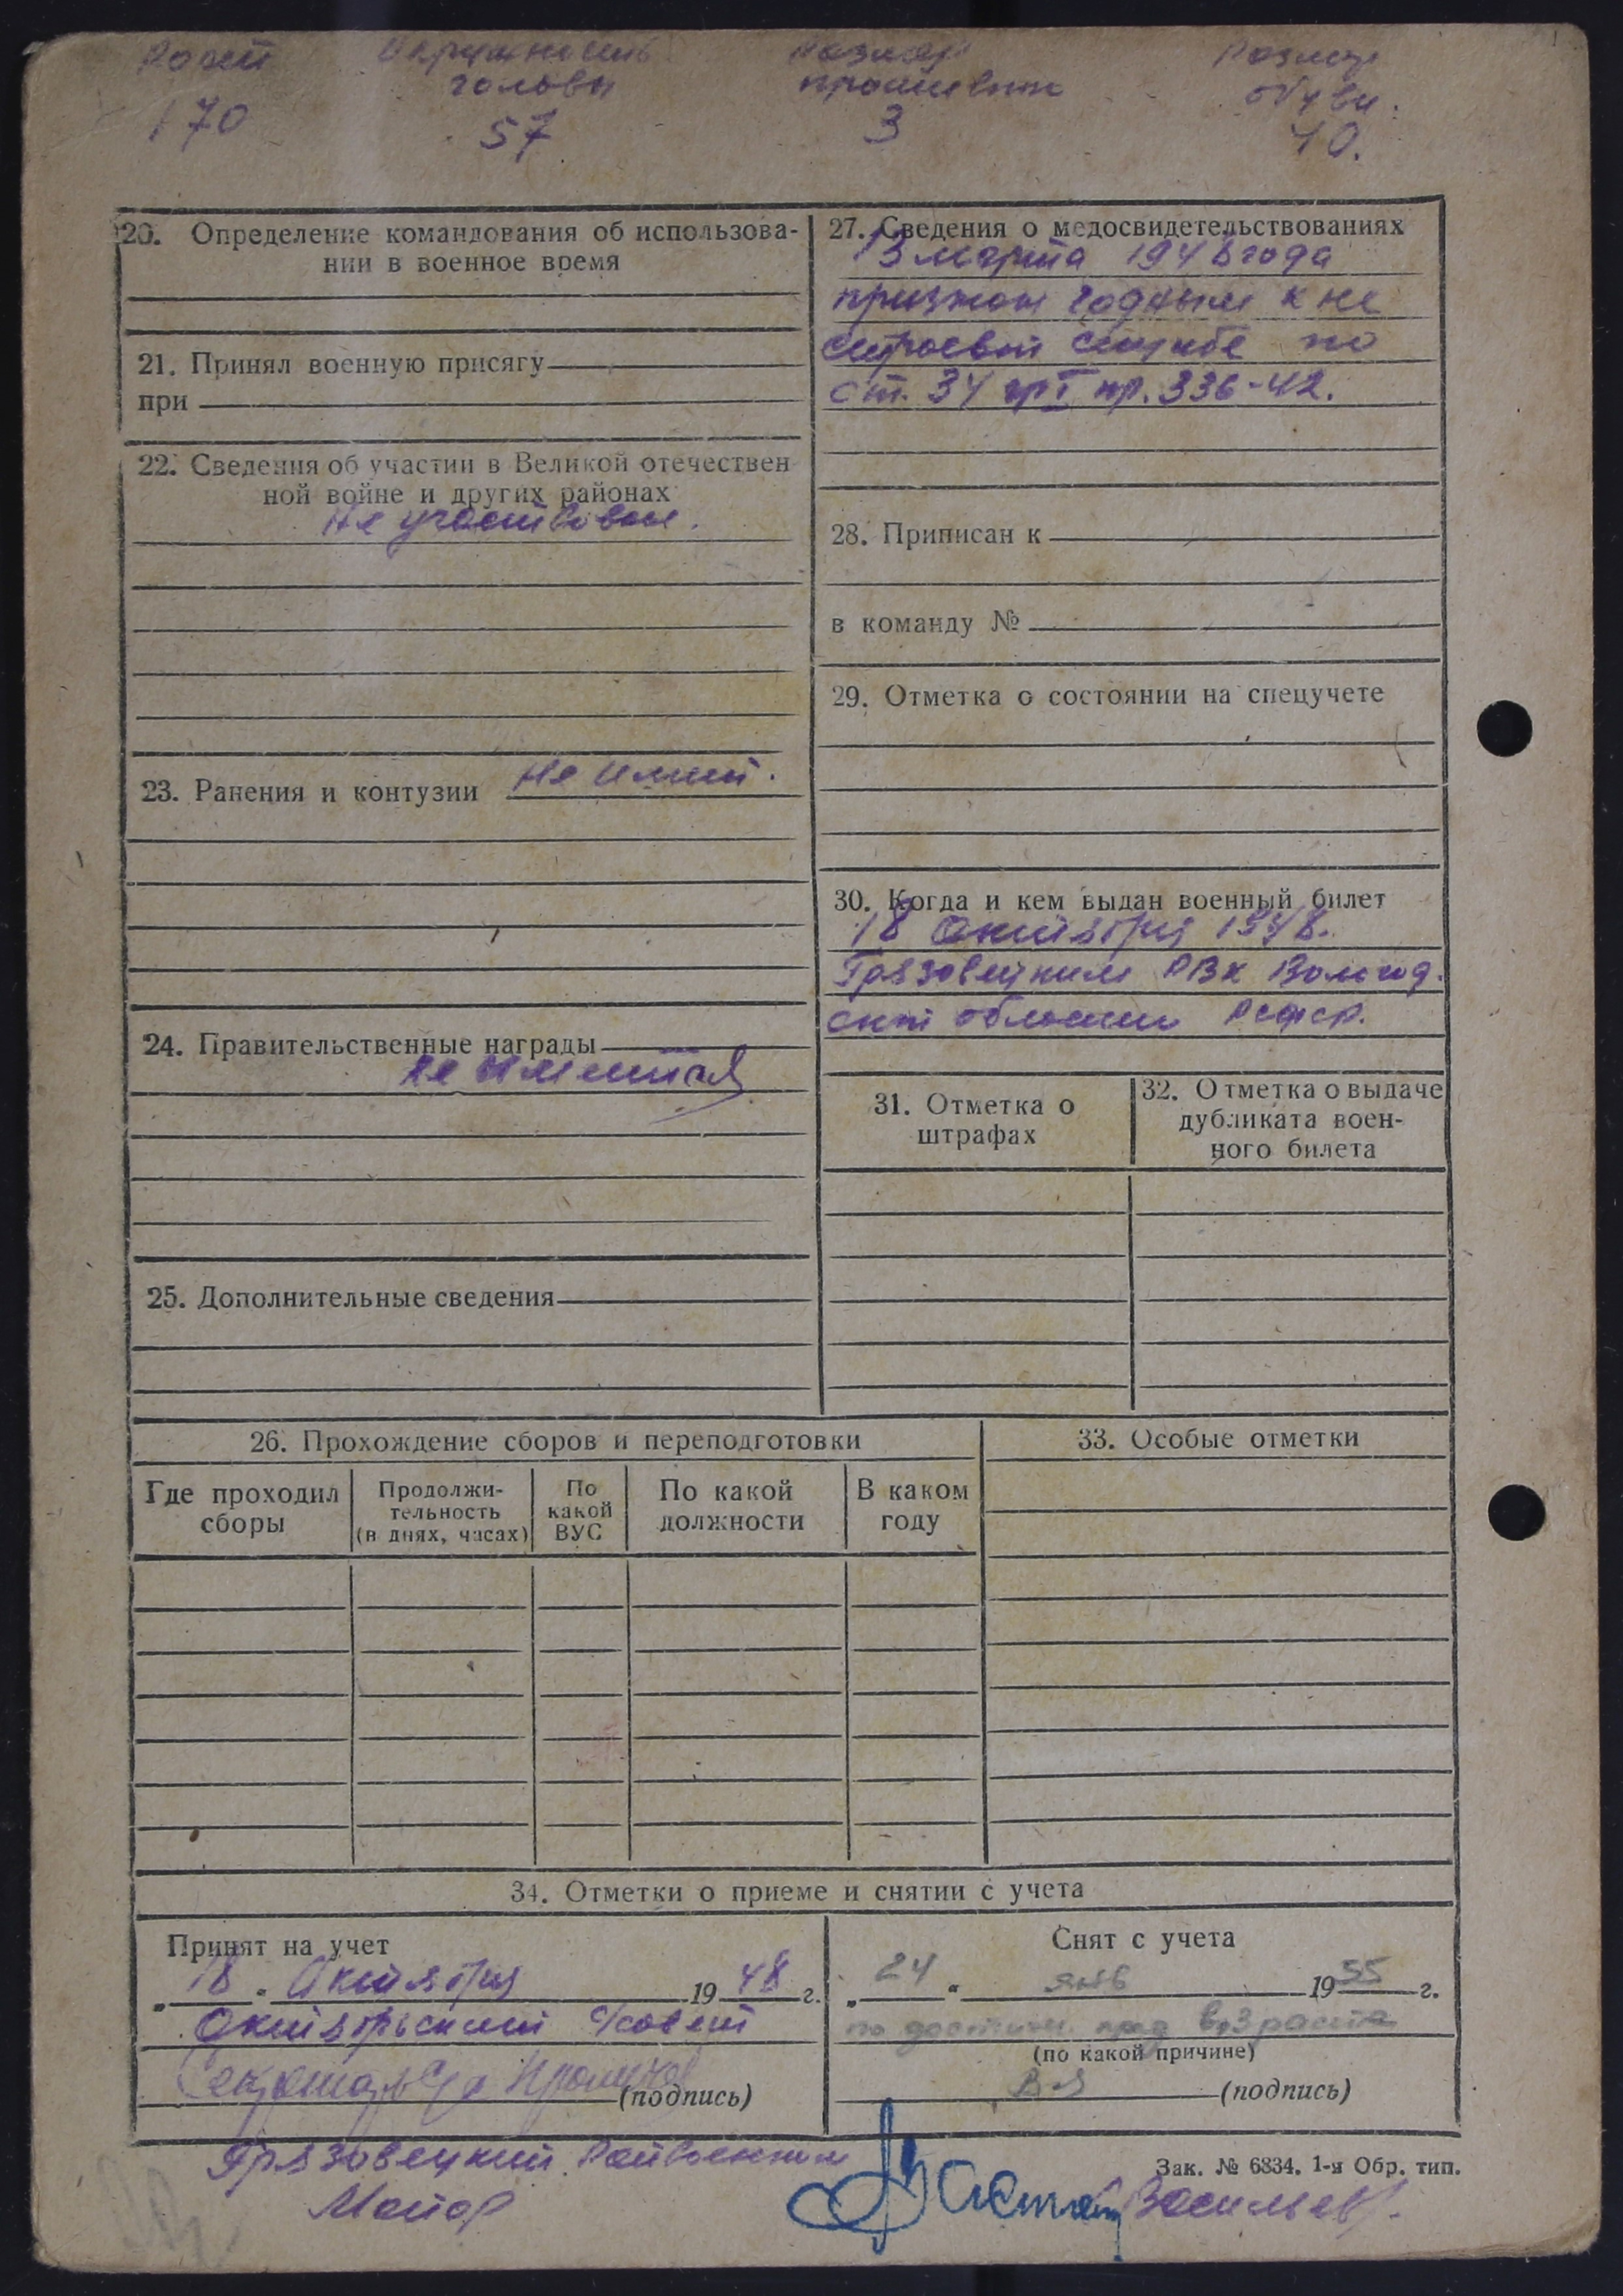 Рост Окружность Размер Размер
головы противогаза обуви.
170 57 3 40.
20. Определение командования об использова-
нии в военное время
21. Принял военную присягу
при
22. Сведения об участии в Великой отечествен
ной войне и других районах
Не участвовал.
23. Ранения и контузии Не имеет.
24. Правительственные награды
Не имеется
25. Дополнительные сведения
27. Сведения о медосвидетельствованиях
13 марта 1948 года
признан годным к не
строевой службе по
ст. 34 гр I пр. 336-42.
28. Приписан к
в команду №
29. Отметка о состоянии на спецучете
30. Когда и кем выдан военный билет
18 Октября 1948.
Грязовецким РВК Вологод.
ской области РСФСР.
31. Отметка о
штрафах
32. Отметка о выдаче
дубликата воен-
ного билета
26. Прохождение сборов и переподготовки
Где проходил
сборы
Продолжи-
тельность
(в днях, часах)
По
какой
ВУС
По какой
должности
В каком
году
33. Особые отметки
34. Отметки о приеме и снятии с учета
Принят на учет
„ 18 " Октября 1948 г.
Октябрьский с/совет
Секретарь с/с
(подпись)
Снят с учета
„ 24 " янв 1955 г.
по достиж. пред возраста
(по какой причине)
(подпись)
Грязовецкий Райвоенком
Майор Васильев.
Зак. № 6834. 1-я Обр. тип.